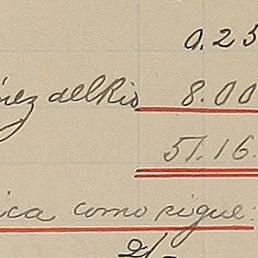 0.25
nez del Rio 8.00
51.16.
ica como sigue: